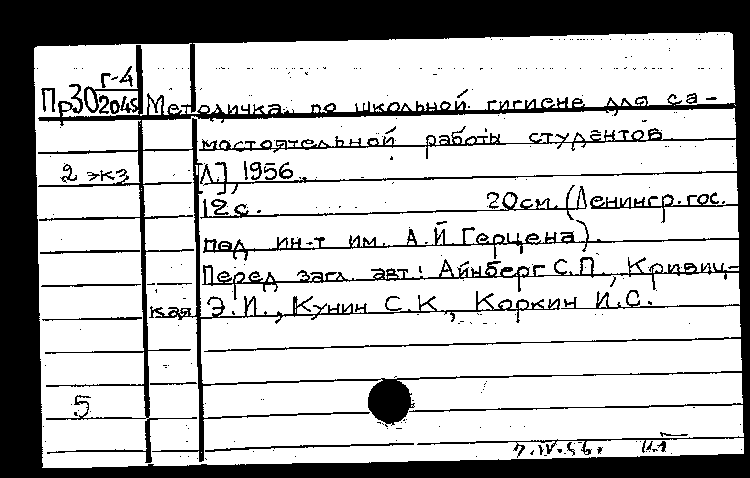 Пр30 Г-4/2045 Методичка по школьной гигиене для са-
мостоятельной работы студентов
2 экз [Л.], 1956.
12 с. 20 см. (Ленингр. гос.
пед. ин-т им. А.И. Герцена).
Перед загл. авт.: Айнберг С.П., Кривиц-
кая Э.И., Кунин С.К., Коркин И.С.
5
7.IV.56г.